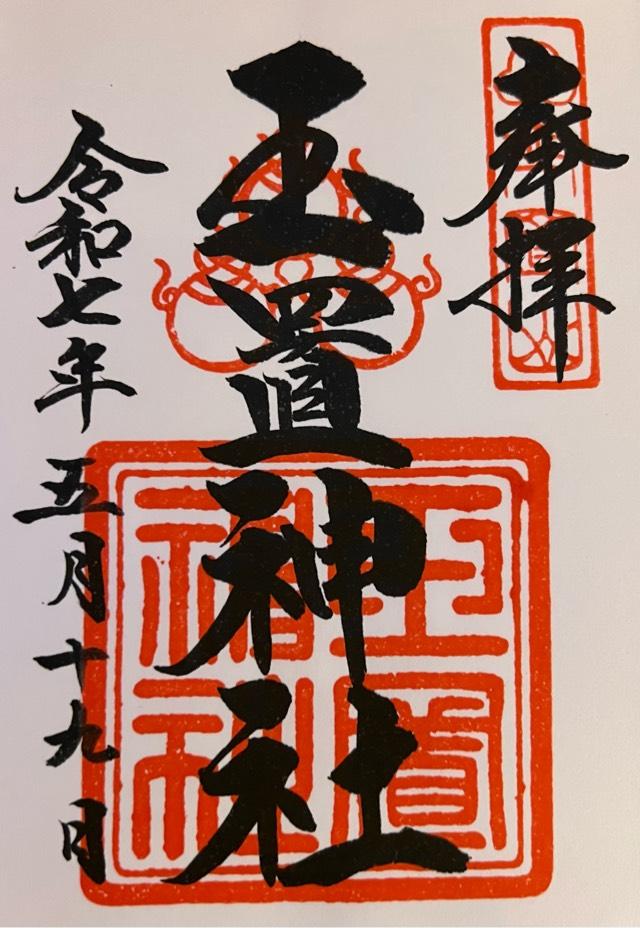 奉拝
玉置神社
令和七年五月十九日
玉置神社